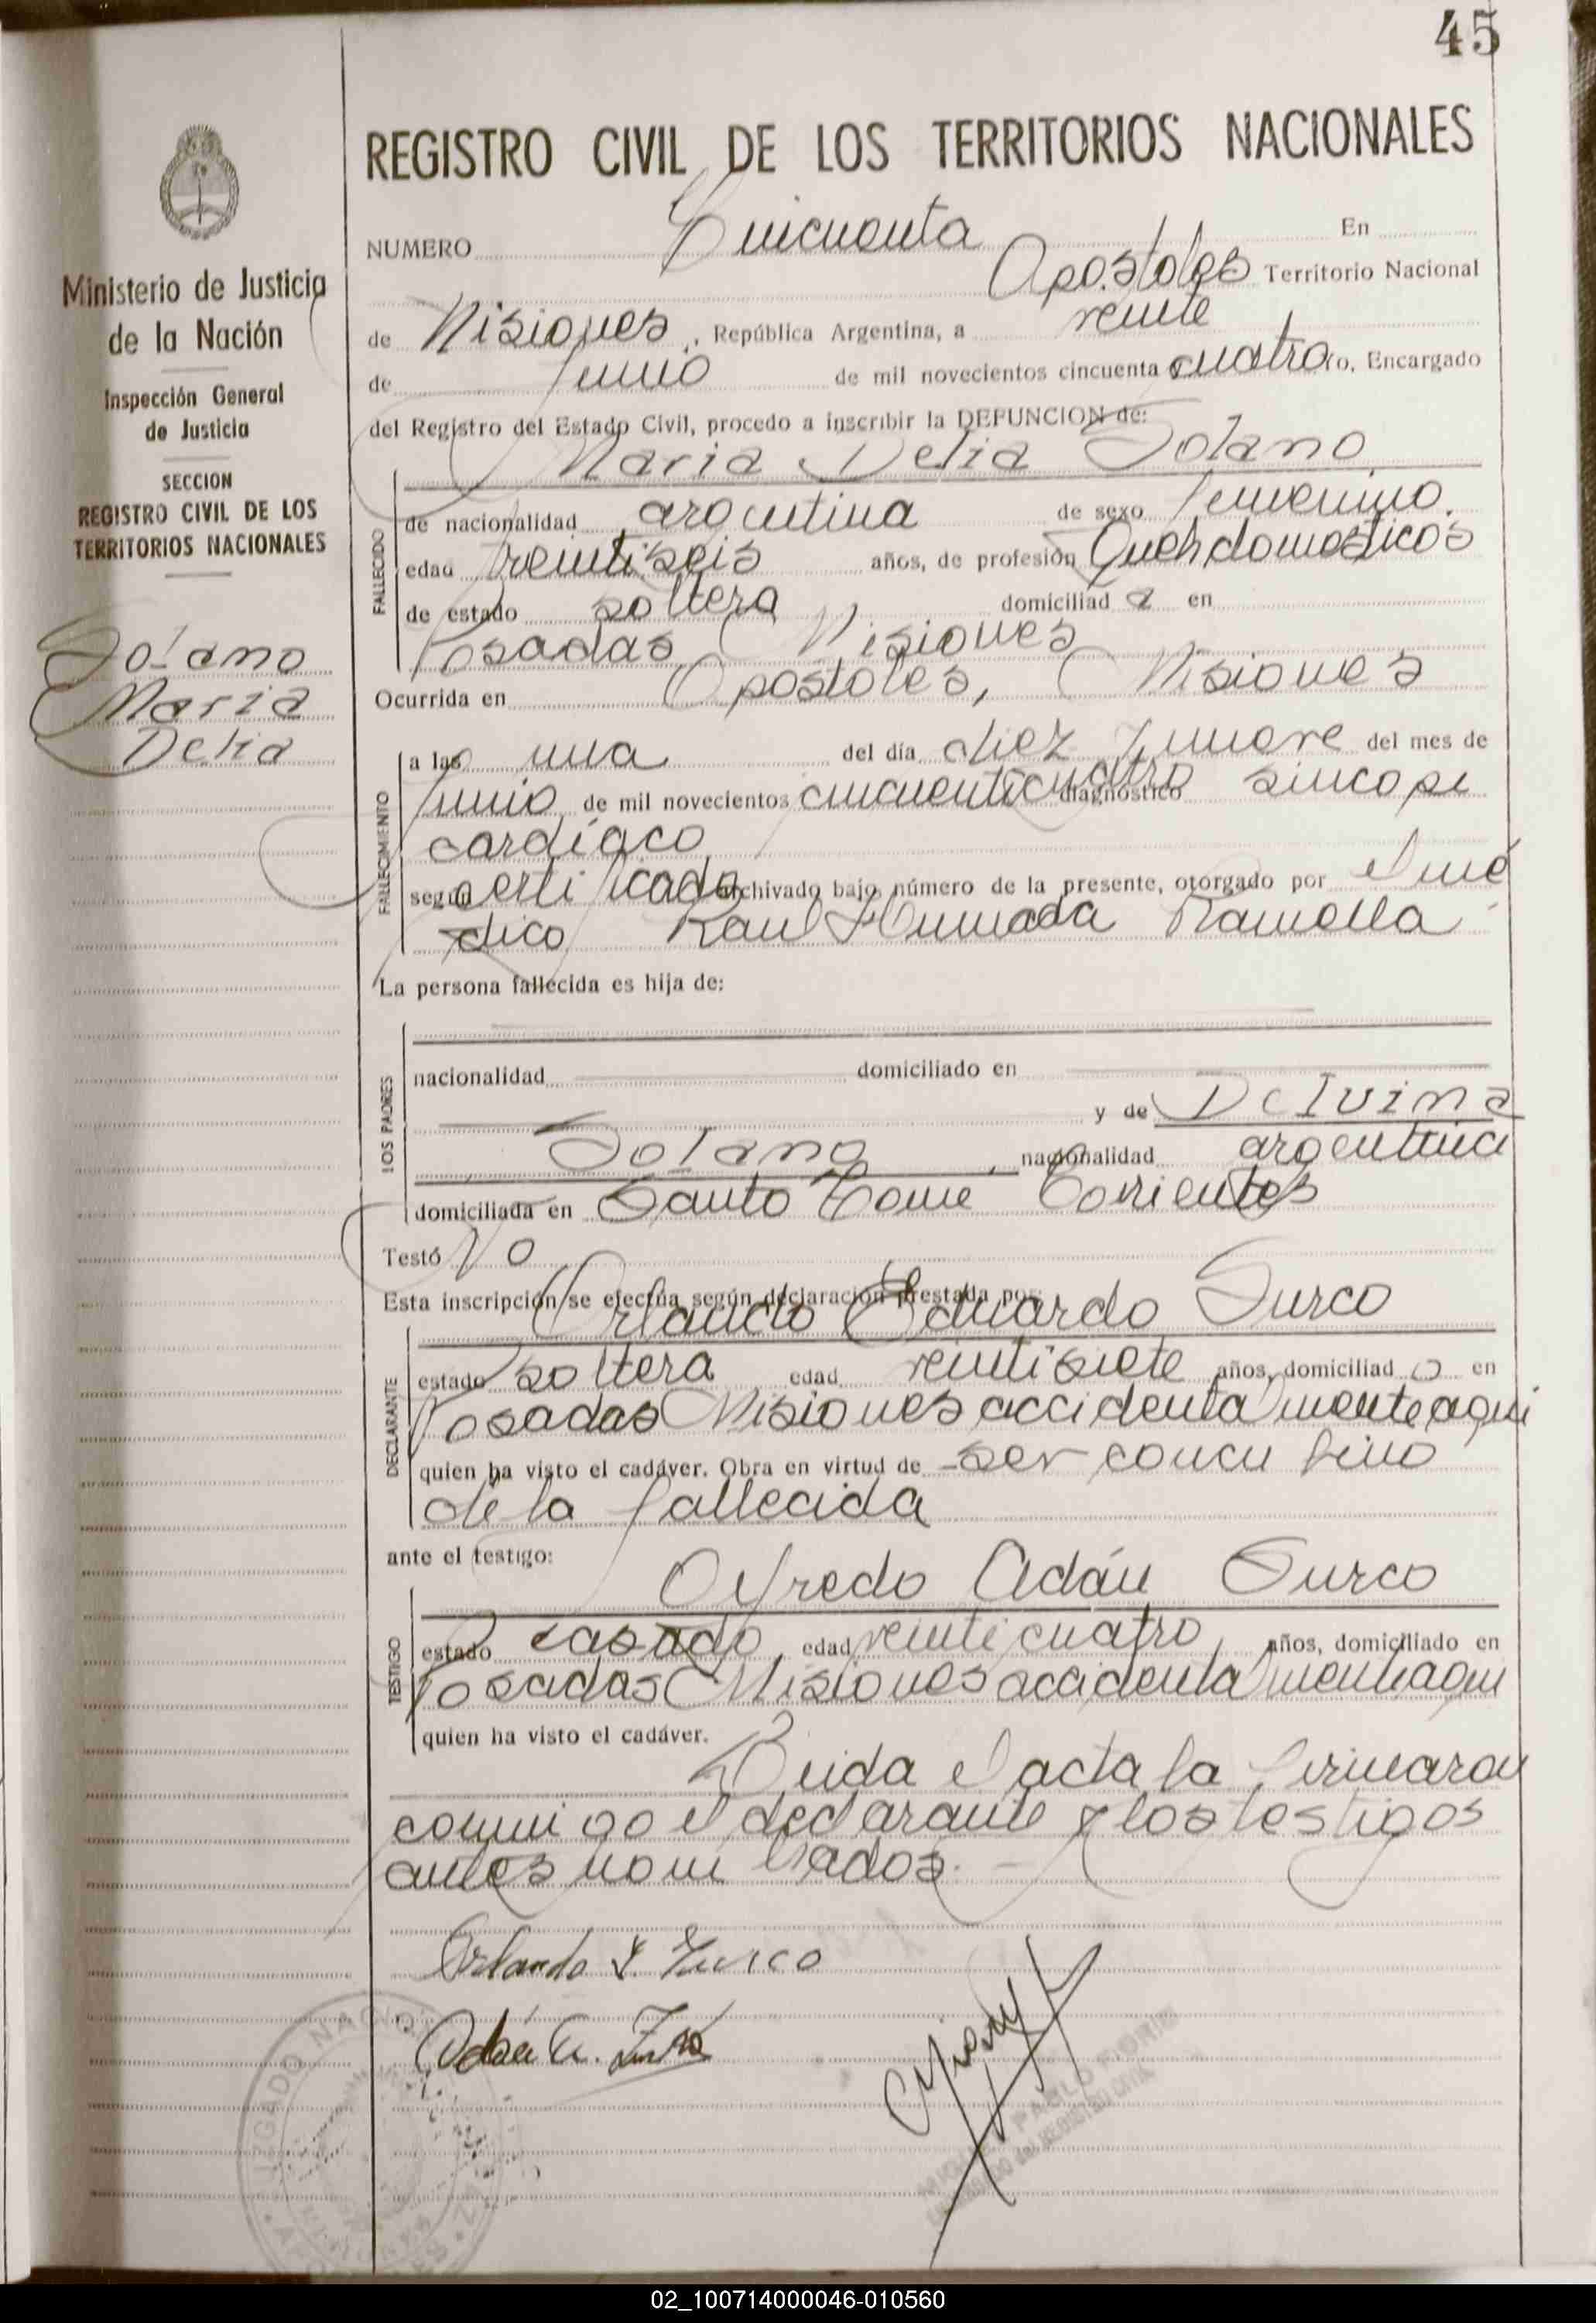 45
REGISTRO CIVIL DE LOS TERRITORIOS NACIONALES
Ministerio de Justicia
de la Nación
Inspección General
de Justicia
SECCION
REGISTRO CIVIL DE LOS
TERRITORIOS NACIONALES
Solano
Maria
Delia
NUMERO Cincuenta En
Apostoles Territorio Nacional
de Misiones, República Argentina, a veinte
de Junio de mil novecientos cincuenta cuatro yo, Encargado
del Registro del Estado Civil, procedo a inscribir la DEFUNCION de:
Maria Delia Solano
FALLECIDO
de nacionalidad argentina de sexo femenino.
edad veintiseis años, de profesión Queh domesticos
de estado soltera domiciliad a en
Posadas Misiones
Ocurrida en Apostoles, Misiones
FALLECIMIENTO
a las una del día diez y nueve del mes de
Junio de mil novecientos cincuenticuatro diagnóstico sincope
cardíaco
según certificado archivado bajo número de la presente, otorgado por el mé
dico Raul Ramella
La persona fallecida es hija de:
LOS PADRES
nacionalidad domiciliado en
y de Delvina
Solano, nacionalidad argentina
domiciliada en Santo Tome Corrientes
Testó No
Esta inscripción se efectúa según declaración prestada por:
Orlando Eduardo Turco
DECLARANTE
estado soltera edad veintisiete años, domiciliad o en
Posadas Misiones accidentalmente aqui
quien ha visto el cadáver. Obra en virtud de ser concubino
de la fallecida
ante el testigo:
Alfredo Adán Turco
TESTIGO
estado casado, edad veinticuatro, años, domiciliado en
Posadas Misiones accidentalmente aqui
quien ha visto el cadáver.
Leida el acta la firmaron
conmigo el declarante y los testigos
antes nombrados.-
Orlando E. Turco
Adán A. Turco
PABLO
REGISTRO CIVIL
02_100714000046-010560